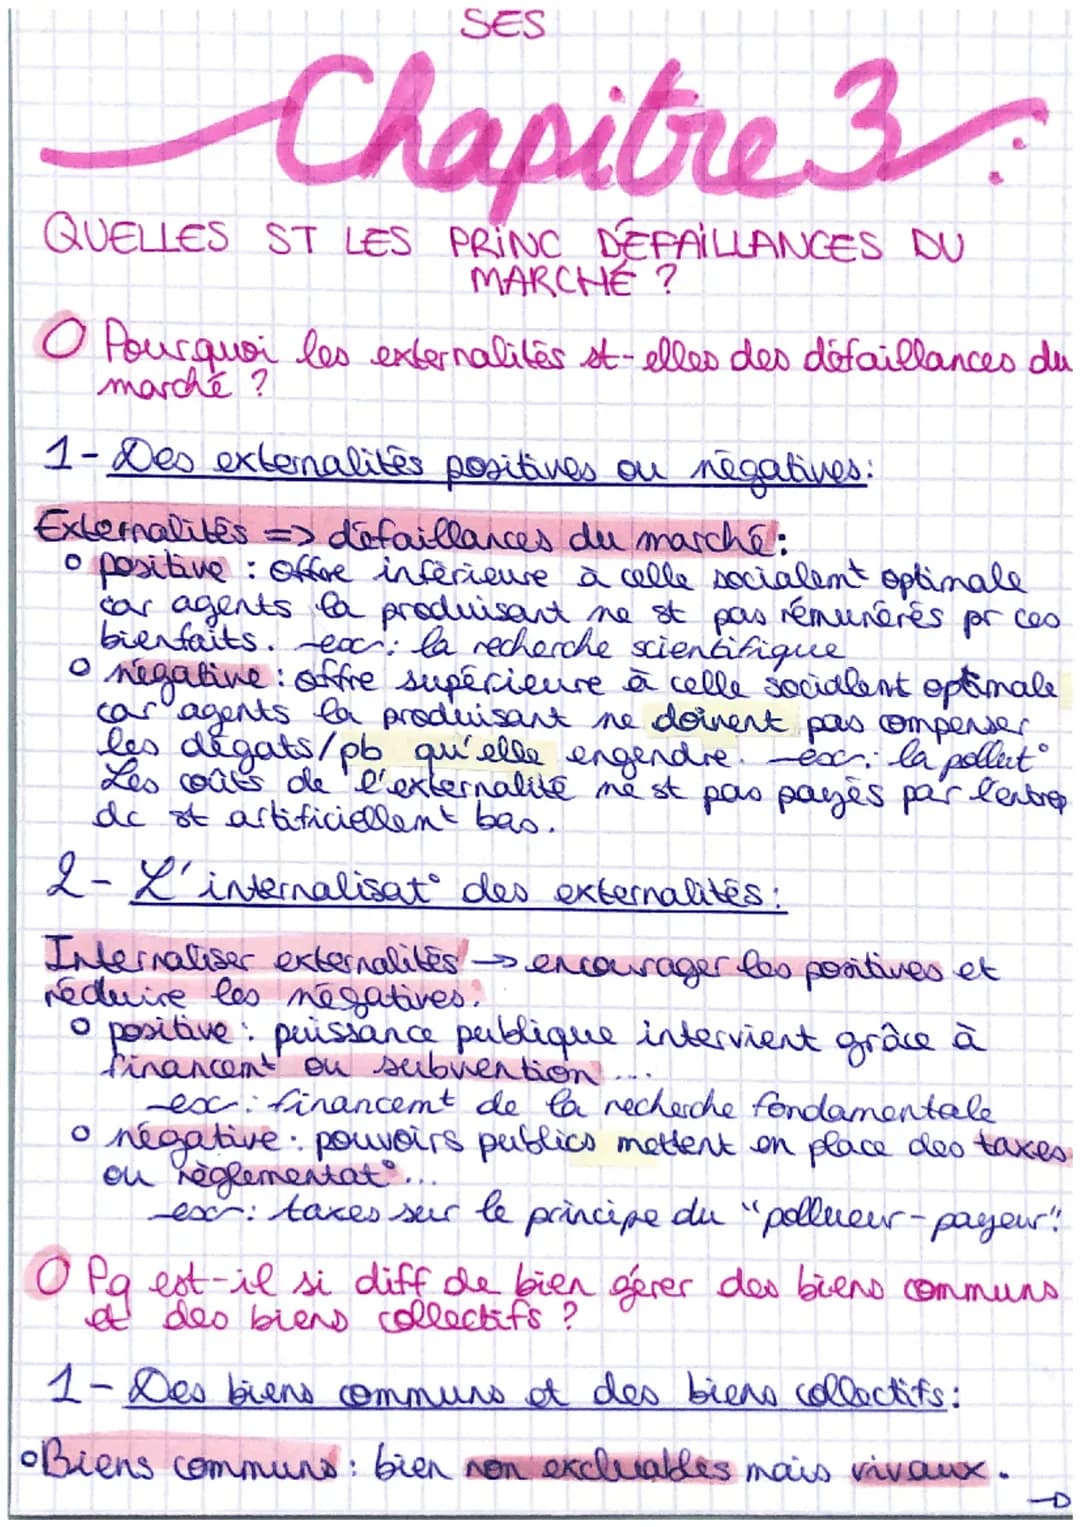 SES
Chapitre 3 :
QUELLES ST LES PRINC DÉFAILLANCES DU
MARCHÉ ?
O Pourquoi les externalités st-elles des défaillances du
marché ?
1 - Des externalités positives ou négatives :
Externalités => défaillances du marché :
o positive : offre inférieure à celle socialemt optimale
car agents la produisant ne st pas rémunérés pr ces
bienfaits. → ex : la recherche scientifique
o négative : offre supérieure à celle socialemt optimale
car agents la produisant ne doivent pas compenser
les dégats/pb qu'elle engendre. → ex : la pollut°
Les coûts de l'externalité ne st pas payés par l'entrep
dc st artificiellemt bas.
2 - L'internalisat° des externalités :
Internaliser externalités → encourager les positives et
réduire les négatives.
o positive : puissance publique intervient grâce à
financemt ou subvention ...
→ ex : financemt de la recherche fondamentale
o négative : pouvoirs publics mettent en place des taxes
ou règlementat° ...
→ ex : taxes sur le principe du "pollueur-payeur"
O Pq est-il si diff de bien gérer des biens communs
et des biens collectifs ?
1 - Des biens communs et des biens collectifs :
o Biens communs : bien non excluables mais rivaux.
→